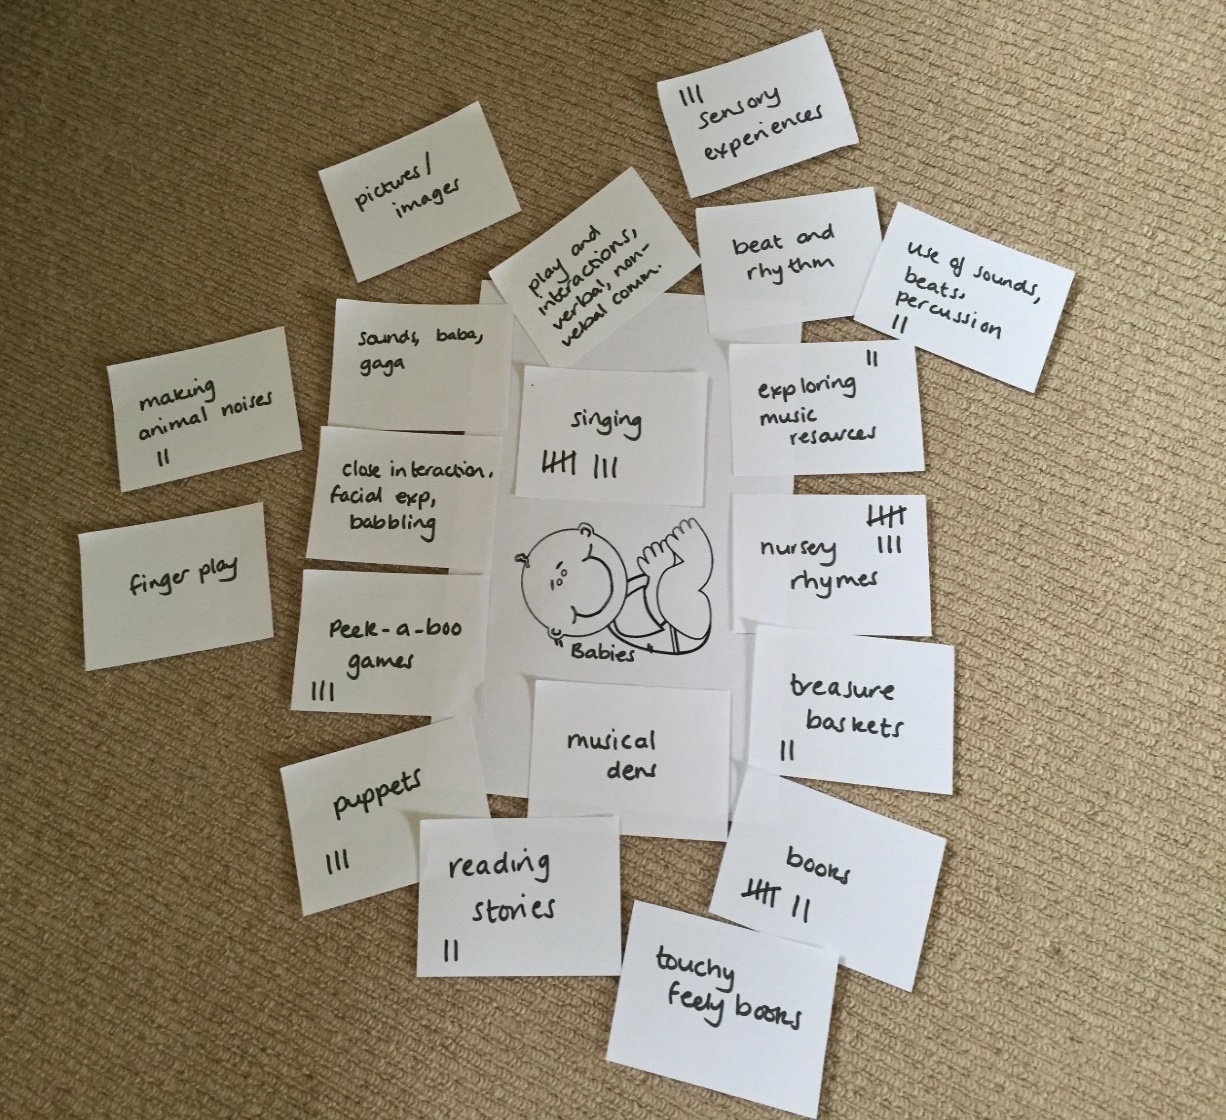 III
sensory
experiences
pictures/
images
play and
interactions,
verbal, non-
verbal comm.
beat and
rhythm
use of sounds,
beats,
percussion
II
sounds, baba,
gaga
making
animal noises
II
singing
IIII III
II
exploring
music
resources
close interaction,
facial exp,
babbling
finger play
IIII
III
nursery
rhymes
Peek-a-boo
games
III
"Babies"
treasure
baskets
II
musical
dens
puppets
III
reading
stories
II
books
IIII II
touchy
feely books